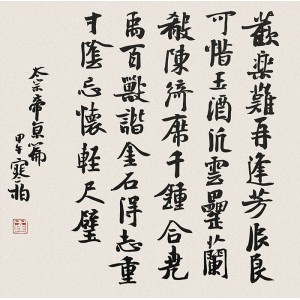 歡樂難再逢芳辰良
可惜玉酒泛雲罍蘭
殽陳綺席千鍾合堯
禹百獸諧金石得志重
寸陰忘懷輕尺璧
太宗帝京篇
甲午